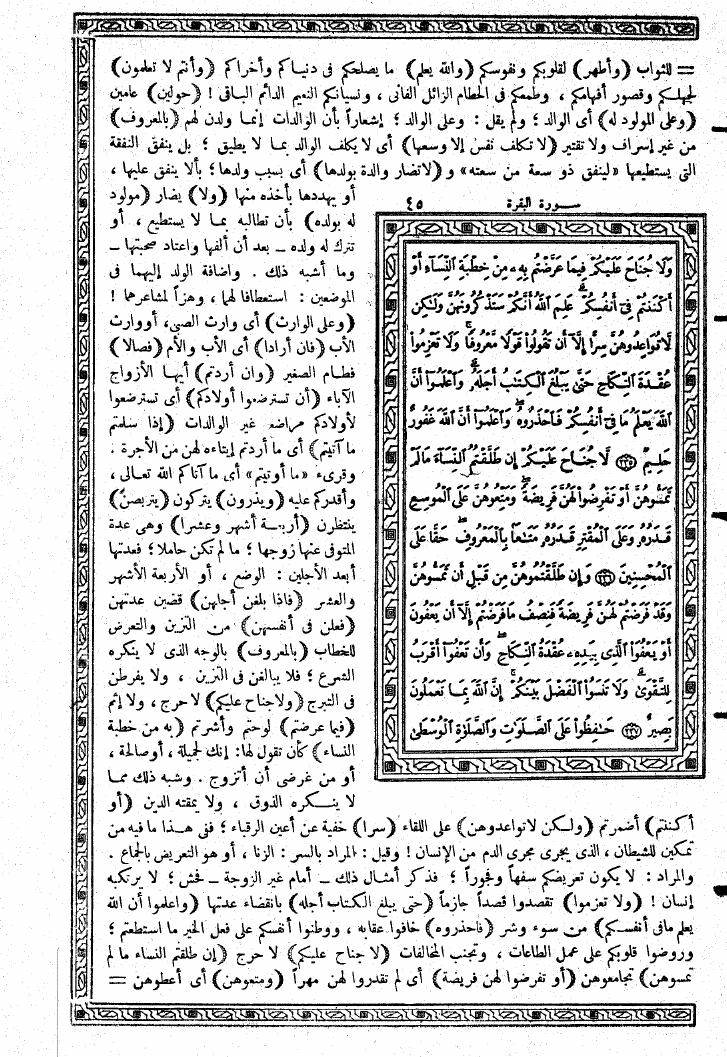 = للثواب (وأطهر) لقلوبكم ونفوسكم (والله يعلم) ما يصلحكم فى دنياكم وأخراكم (وأنتم لا تعلمون)
لجهلكم وقصور أفهامكم ، وطمعكم فى الحطام الزائل الفانى ، ونسيانكم النعيم الدائم الباقى ! (حولين) عامين
(وعلى المولود له) أى الوالد ؛ ولم يقل : وعلى الوالد ؛ إشعاراً بأن الوالدات إنما ولدن لهم (بالمعروف)
من غير إسراف ولا تقتير (لا تكلف نفس إلا وسعها) أى لا يكلف الوالد بما لا يطيق ؛ بل ينفق النفقة
التى يستطيعها «لينفق ذو سعة من سعته» و (لاتضار والدة بولدها) أى بسبب ولدها؛ بألا ينفق عليها ،
أو يهددها بأخذه منها (ولا) يضار (مولود
له بولده) بأن تطالبه بما لا يستطيع ، أو
تترك له ولده ــ بعد أن ألفها واعتاد صحبتها ــ
وما أشبه ذلك . وإضافة الولد إليهما فى
الموضعين : استعطافا لهما ، وهزاً لمشاعرهما !
(وعلى الوارث) أى وارث الصبى، أووارث
الأب (فان أرادا) أى الأب والأم (فصالا)
فطام الصغير (وان أردتم) أيها الأزواج
الآباء (أن تسترضعوا أولادكم) أى تسترضعوا
لأولادكم مراضع غير الوالدات (إذا سلمتم
ما آتيتم) أى ما أردتم إيتاءه لهن من الأجرة .
وقرىء «ما أوتيتم» أى ما آتاكم الله تعالى ،
وأقدركم عليه (ويذرون) يتركون (يتربصن)
ينتظرن (أربعة أشهر وعشرا) وهى عدة
المتوفى عنها زوجها ؛ ما لم تكن حاملا ؛ فعدتها
أبعد الأجلين : الوضع ، أو الأربعة الأشهر
والعشر (فاذا بلغن أجلهن) قضين عدتهن
(فعلن فى أنفسهن) من التزين والتعرض
للخطاب (بالمعروف) بالوجه الذى لا ينكره
الشرع ؛ فلا يبالغن فى التزين ، ولا يفرطن
فى التبرج (ولاجناح عليكم) لا حرج ، ولا إثم
(فيما عرضتم) لوحتم وأشرتم (به من خطبة
النساء) كأن تقول لها : إنك لجميلة ، أو صالحة ،
أو من غرضى أن أتزوج . وشبه ذلك مما
لا ينكره الذوق ، ولا يمقته الدين (أو
سورة البقرة ٤٥
وَلَا جُنَاحَ عَلَيْكُمْ فِيمَا عَرَّضْتُم بِهِۦ مِنْ خِطْبَةِ النِّسَآءِ أَوْ
أَكْنَنتُمْ فِىٓ أَنفُسِكُمْ عَلِمَ اللَّهُ أَنَّكُمْ سَتَذْكُرُونَهُنَّ وَلَٰكِن
لَّا تُوَاعِدُوهُنَّ سِرًّا إِلَّآ أَن تَقُولُوا۟ قَوْلًا مَّعْرُوفًا وَلَا تَعْزِمُوا۟
عُقْدَةَ النِّكَاحِ حَتَّىٰ يَبْلُغَ الْكِتَٰبُ أَجَلَهُۥ وَاعْلَمُوٓا۟ أَنَّ
اللَّهَ يَعْلَمُ مَا فِىٓ أَنفُسِكُمْ فَاحْذَرُوهُ وَاعْلَمُوٓا۟ أَنَّ اللَّهَ غَفُورٌ
حَلِيمٌ ﴿٢٣٥﴾ لَّا جُنَاحَ عَلَيْكُمْ إِن طَلَّقْتُمُ النِّسَآءَ مَا لَمْ
تَمَسُّوهُنَّ أَوْ تَفْرِضُوا۟ لَهُنَّ فَرِيضَةً وَمَتِّعُوهُنَّ عَلَى الْمُوسِعِ
قَدَرُهُۥ وَعَلَى الْمُقْتِرِ قَدَرُهُۥ مَتَٰعًۢا بِالْمَعْرُوفِ حَقًّا عَلَى
الْمُحْسِنِينَ ﴿٢٣٦﴾ وَإِن طَلَّقْتُمُوهُنَّ مِن قَبْلِ أَن تَمَسُّوهُنَّ
وَقَدْ فَرَضْتُمْ لَهُنَّ فَرِيضَةً فَنِصْفُ مَا فَرَضْتُمْ إِلَّآ أَن يَعْفُونَ
أَوْ يَعْفُوَا۟ الَّذِى بِيَدِهِۦ عُقْدَةُ النِّكَاحِ وَأَن تَعْفُوٓا۟ أَقْرَبُ
لِلتَّقْوَىٰ وَلَا تَنسَوُا۟ الْفَضْلَ بَيْنَكُمْ إِنَّ اللَّهَ بِمَا تَعْمَلُونَ
بَصِيرٌ ﴿٢٣٧﴾ حَٰفِظُوا۟ عَلَى الصَّلَوَٰتِ وَالصَّلَوٰةِ الْوُسْطَىٰ
أكننتم) أضمرتم (ولكن لاتواعدوهن) على اللقاء (سرا) خفية عن أعين الرقباء ؛ ففى هذا ما فيه من
تمكين للشيطان ، الذى يجرى مجرى الدم من الإنسان ! وقيل : المراد بالسر : الزنا ، أو هو التعريض بالجماع .
والمراد : لا يكون تعريضكم سفهاً وفجوراً ؛ فذكر أمثال ذلك ــ أمام غير الزوجة ــ فحش ؛ لا يرتكبه
إنسان ! (ولا تعزموا) تقصدوا قصداً جازماً (حتى يبلغ الكتاب أجله) بانقضاء عدتها (واعلموا أن الله
يعلم مافى أنفسكم) من سوء وشر (فاحذروه) خافوا عقابه ، ووطنوا أنفسكم على فعل الخير ما استطعتم ؛
وروضوا قلوبكم على عمل الطاعات ، وتجنب المخالفات (لا جناح عليكم) لا حرج (إن طلقتم النساء ما لم
تمسوهن) تجامعوهن (أو تفرضوا لهن فريضة) أى لم تقدروا لهن مهراً (ومتعوهن) أى أعطوهن =